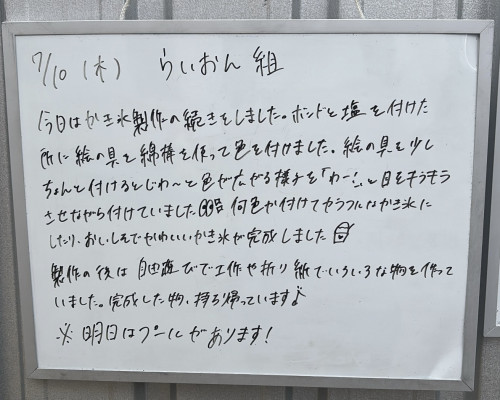 7/10 (木) らいおん組
今日はかき氷製作の続きをしました。ボンドと塩を付けた
所に絵の具と綿棒を使って色を付けました。絵の具を少し
ちょんと付けるとじわ〜と色が広がる様子を「わー!」と目をキラキラ
させながら付けていました 何色か付けてカラフルなかき氷に
したり、おいしそでかわいいかき氷が完成しました
製作の後は自由遊びで工作や折り紙でいろいろな物を作って
いました。完成した物、持ち帰っています♪
※明日はプールがあります!